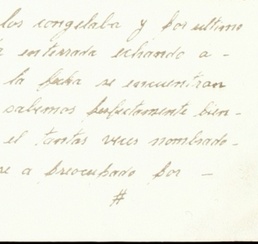 los congelaba y por ultimo
a enterrada echando a -
la fecha se encuentran
sabemos perfectamente bien -
el tantas veces nombrado -
e a preocupado por -
#